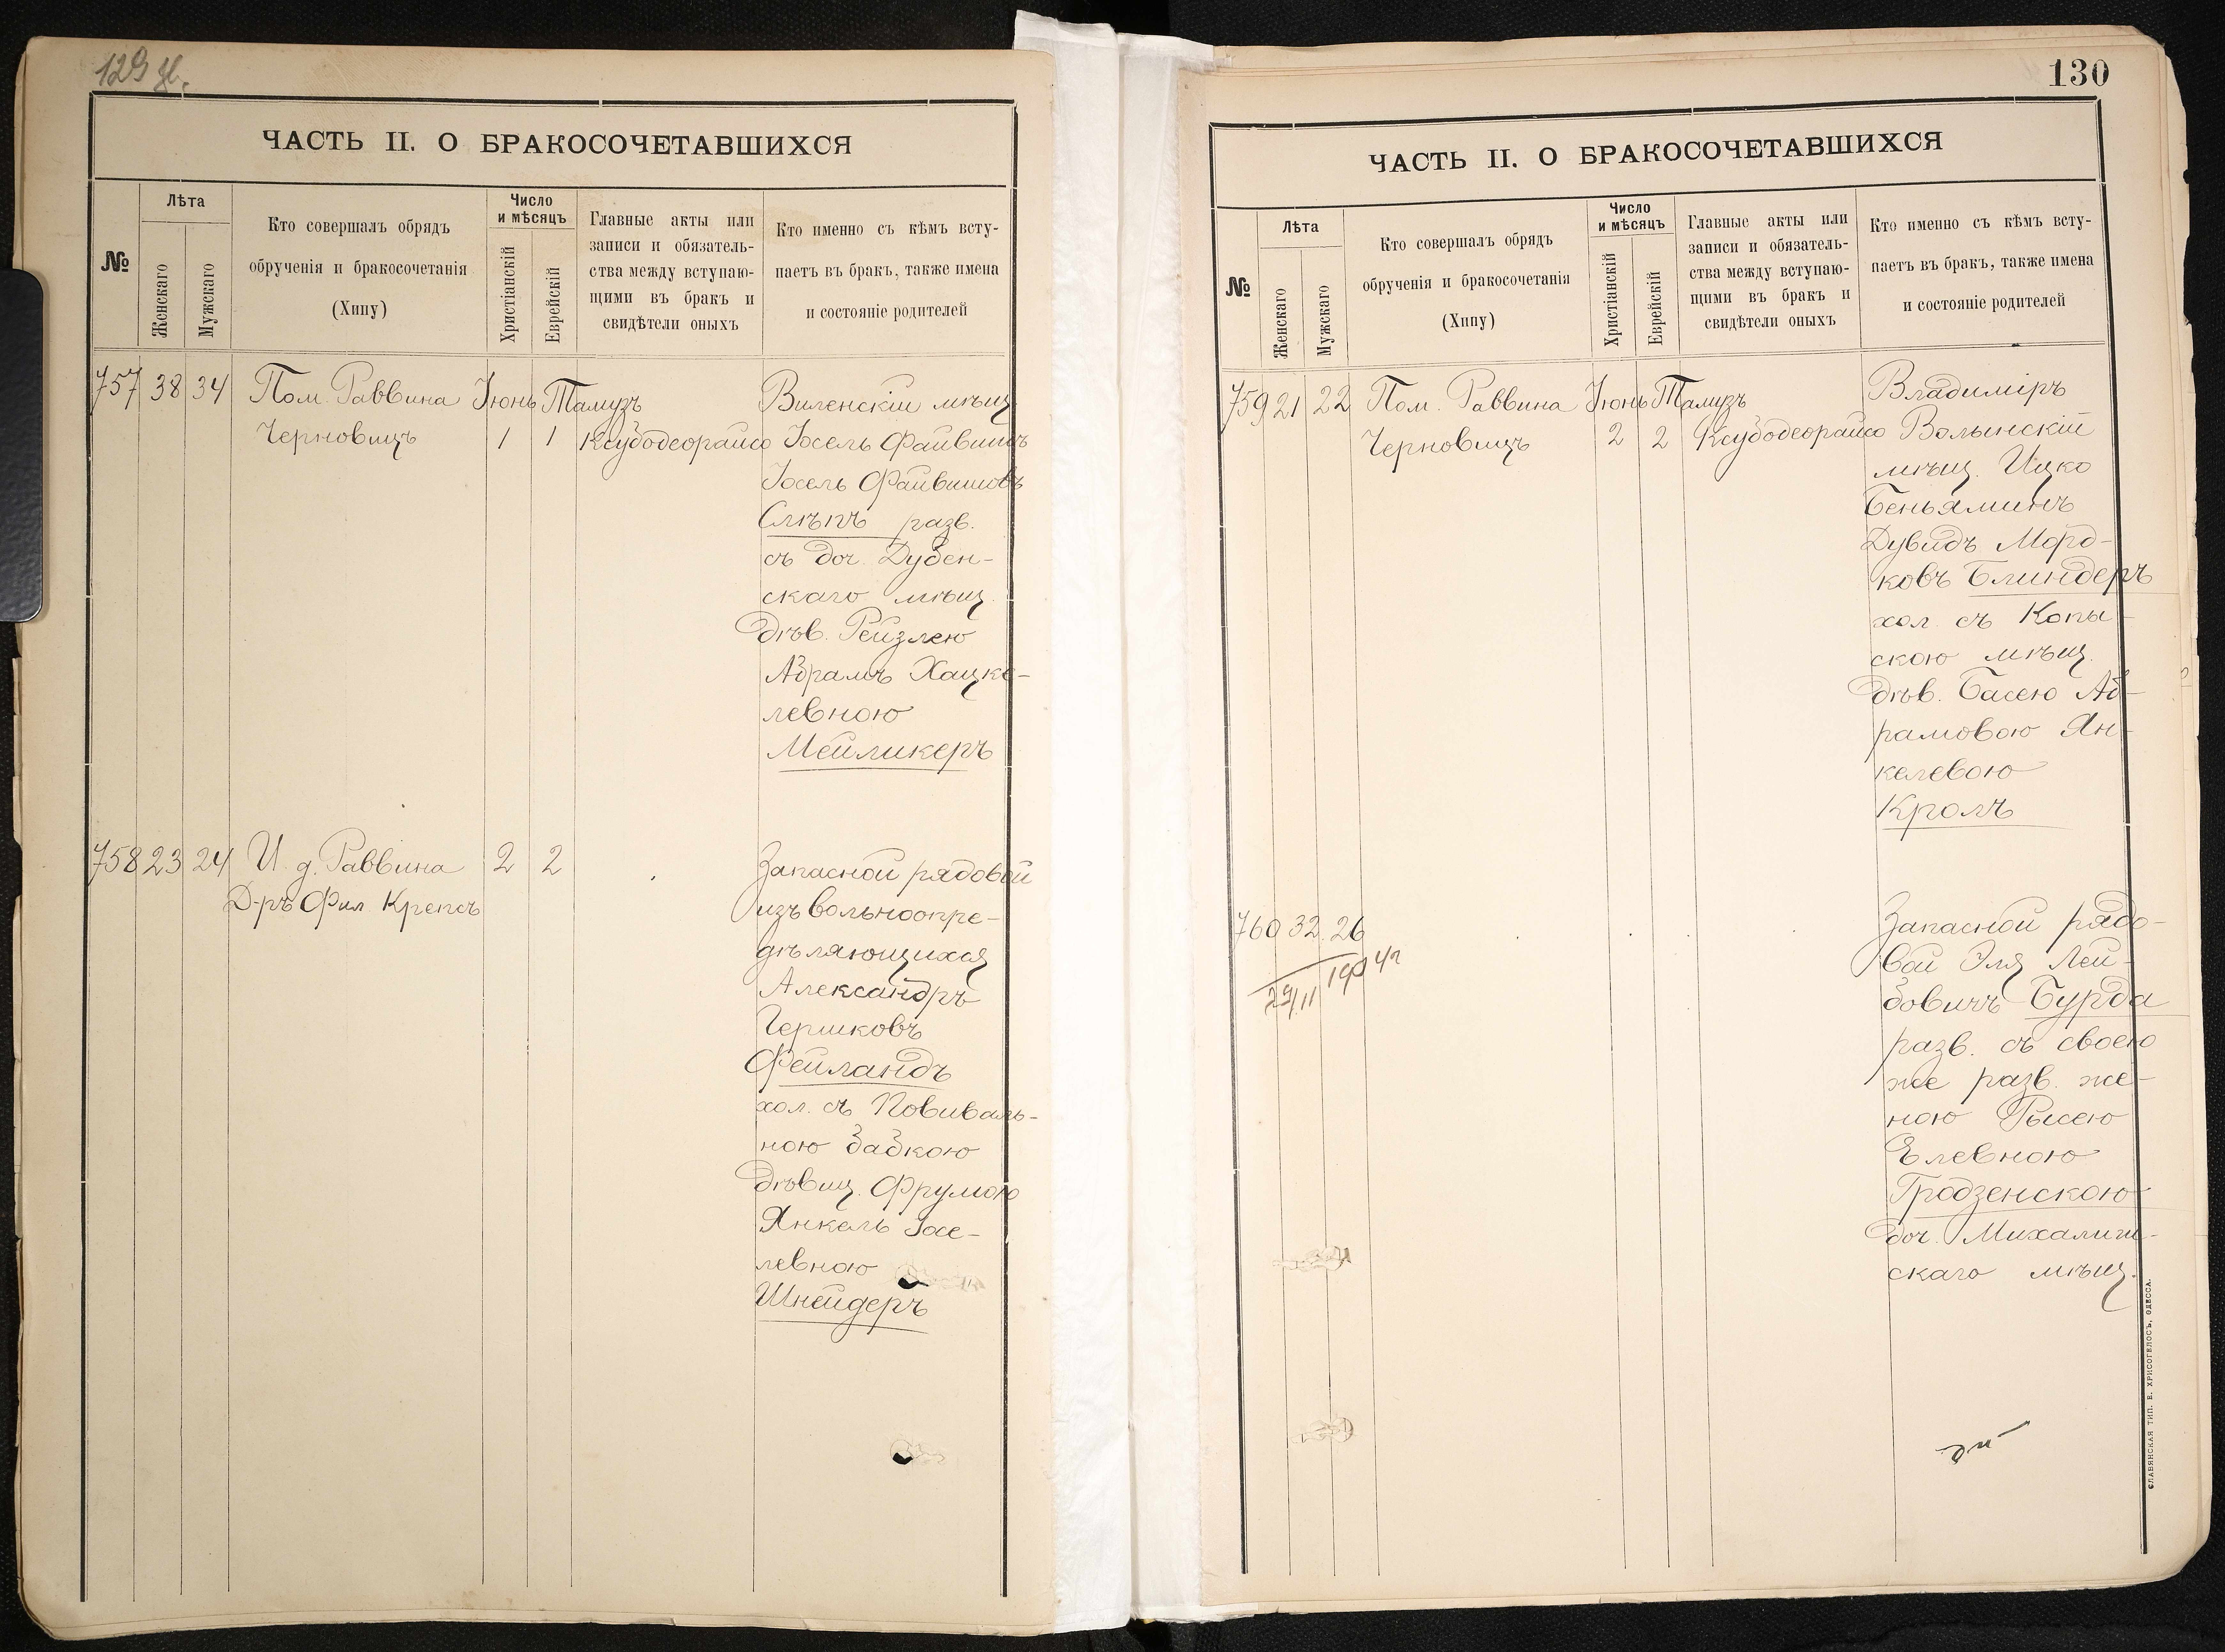 129 об.
ЧАСТЬ II. О БРАКОСОЧЕТАВШИХСЯ
№
Лѣта
Женскаго
Мужскаго
Кто совершалъ обрядъ
обрученія и бракосочетанія
(Хипу)
Число
и мѣсяцъ
Христіанскій
Еврейскій
Главные акты или
записи и обязатель-
ства между вступаю-
щими въ бракъ и
свидѣтели оныхъ
Кто именно съ кѣмъ всту-
паетъ въ бракъ, также имена
и состояніе родителей
757 38 34 Пом. Раввина Іюнь Тамузъ
Черновицъ 1 1 Ксубодеорайсо
Виленскій мѣщ.
Іосель Файвишъ
Іосель Файвишовъ
Слѣпъ разв.
съ доч. Дубен-
скаго мѣщ.
дѣв. Рейзлею
Абрамъ Хацке-
левною
Мейликеръ
758 23 24 И. д. Раввина 2 2
Д-ръ Фил. Крепсъ
Запасной рядовой
изъ вольноопре-
дѣляющихся
Александръ
Гершковъ
Фейландъ
хол. съ Повиваль-
ною бабкою
дѣвиц. Фрумою
Янкель Іосе-
левною
Шнейдеръ
130
ЧАСТЬ II. О БРАКОСОЧЕТАВШИХСЯ
№
Лѣта
Женскаго
Мужскаго
Кто совершалъ обрядъ
обрученія и бракосочетанія
(Хипу)
Число
и мѣсяцъ
Христіанскій
Еврейскій
Главные акты или
записи и обязатель-
ства между вступаю-
щими въ бракъ и
свидѣтели оныхъ
Кто именно съ кѣмъ всту-
паетъ въ бракъ, также имена
и состояніе родителей
759 21 22 Пом. Раввина Іюнь Тамузъ
Черновицъ 2 2 Ксубодеорайсо
Владиміръ
Волынскій
мѣщ. Ицко
Беньяминъ
Дувидъ Морд-
ковъ Блиндеръ
хол. съ Копы-
скою мѣщ.
дѣв. Басею Аб-
рамовою Ян-
келевою
Кроль
760 32 26
29/11
Запасной рядо-
вой Эля Лей-
бовичъ Бурда
разв. съ своею
же разв. же-
ною Рысею
Елевною
Гродзенскою
доч. Михалиш-
скаго мѣщ.
СЛАВЯНСКАЯ ТИП. Е. ХРИСОГЕЛОСЪ, ОДЕССА.